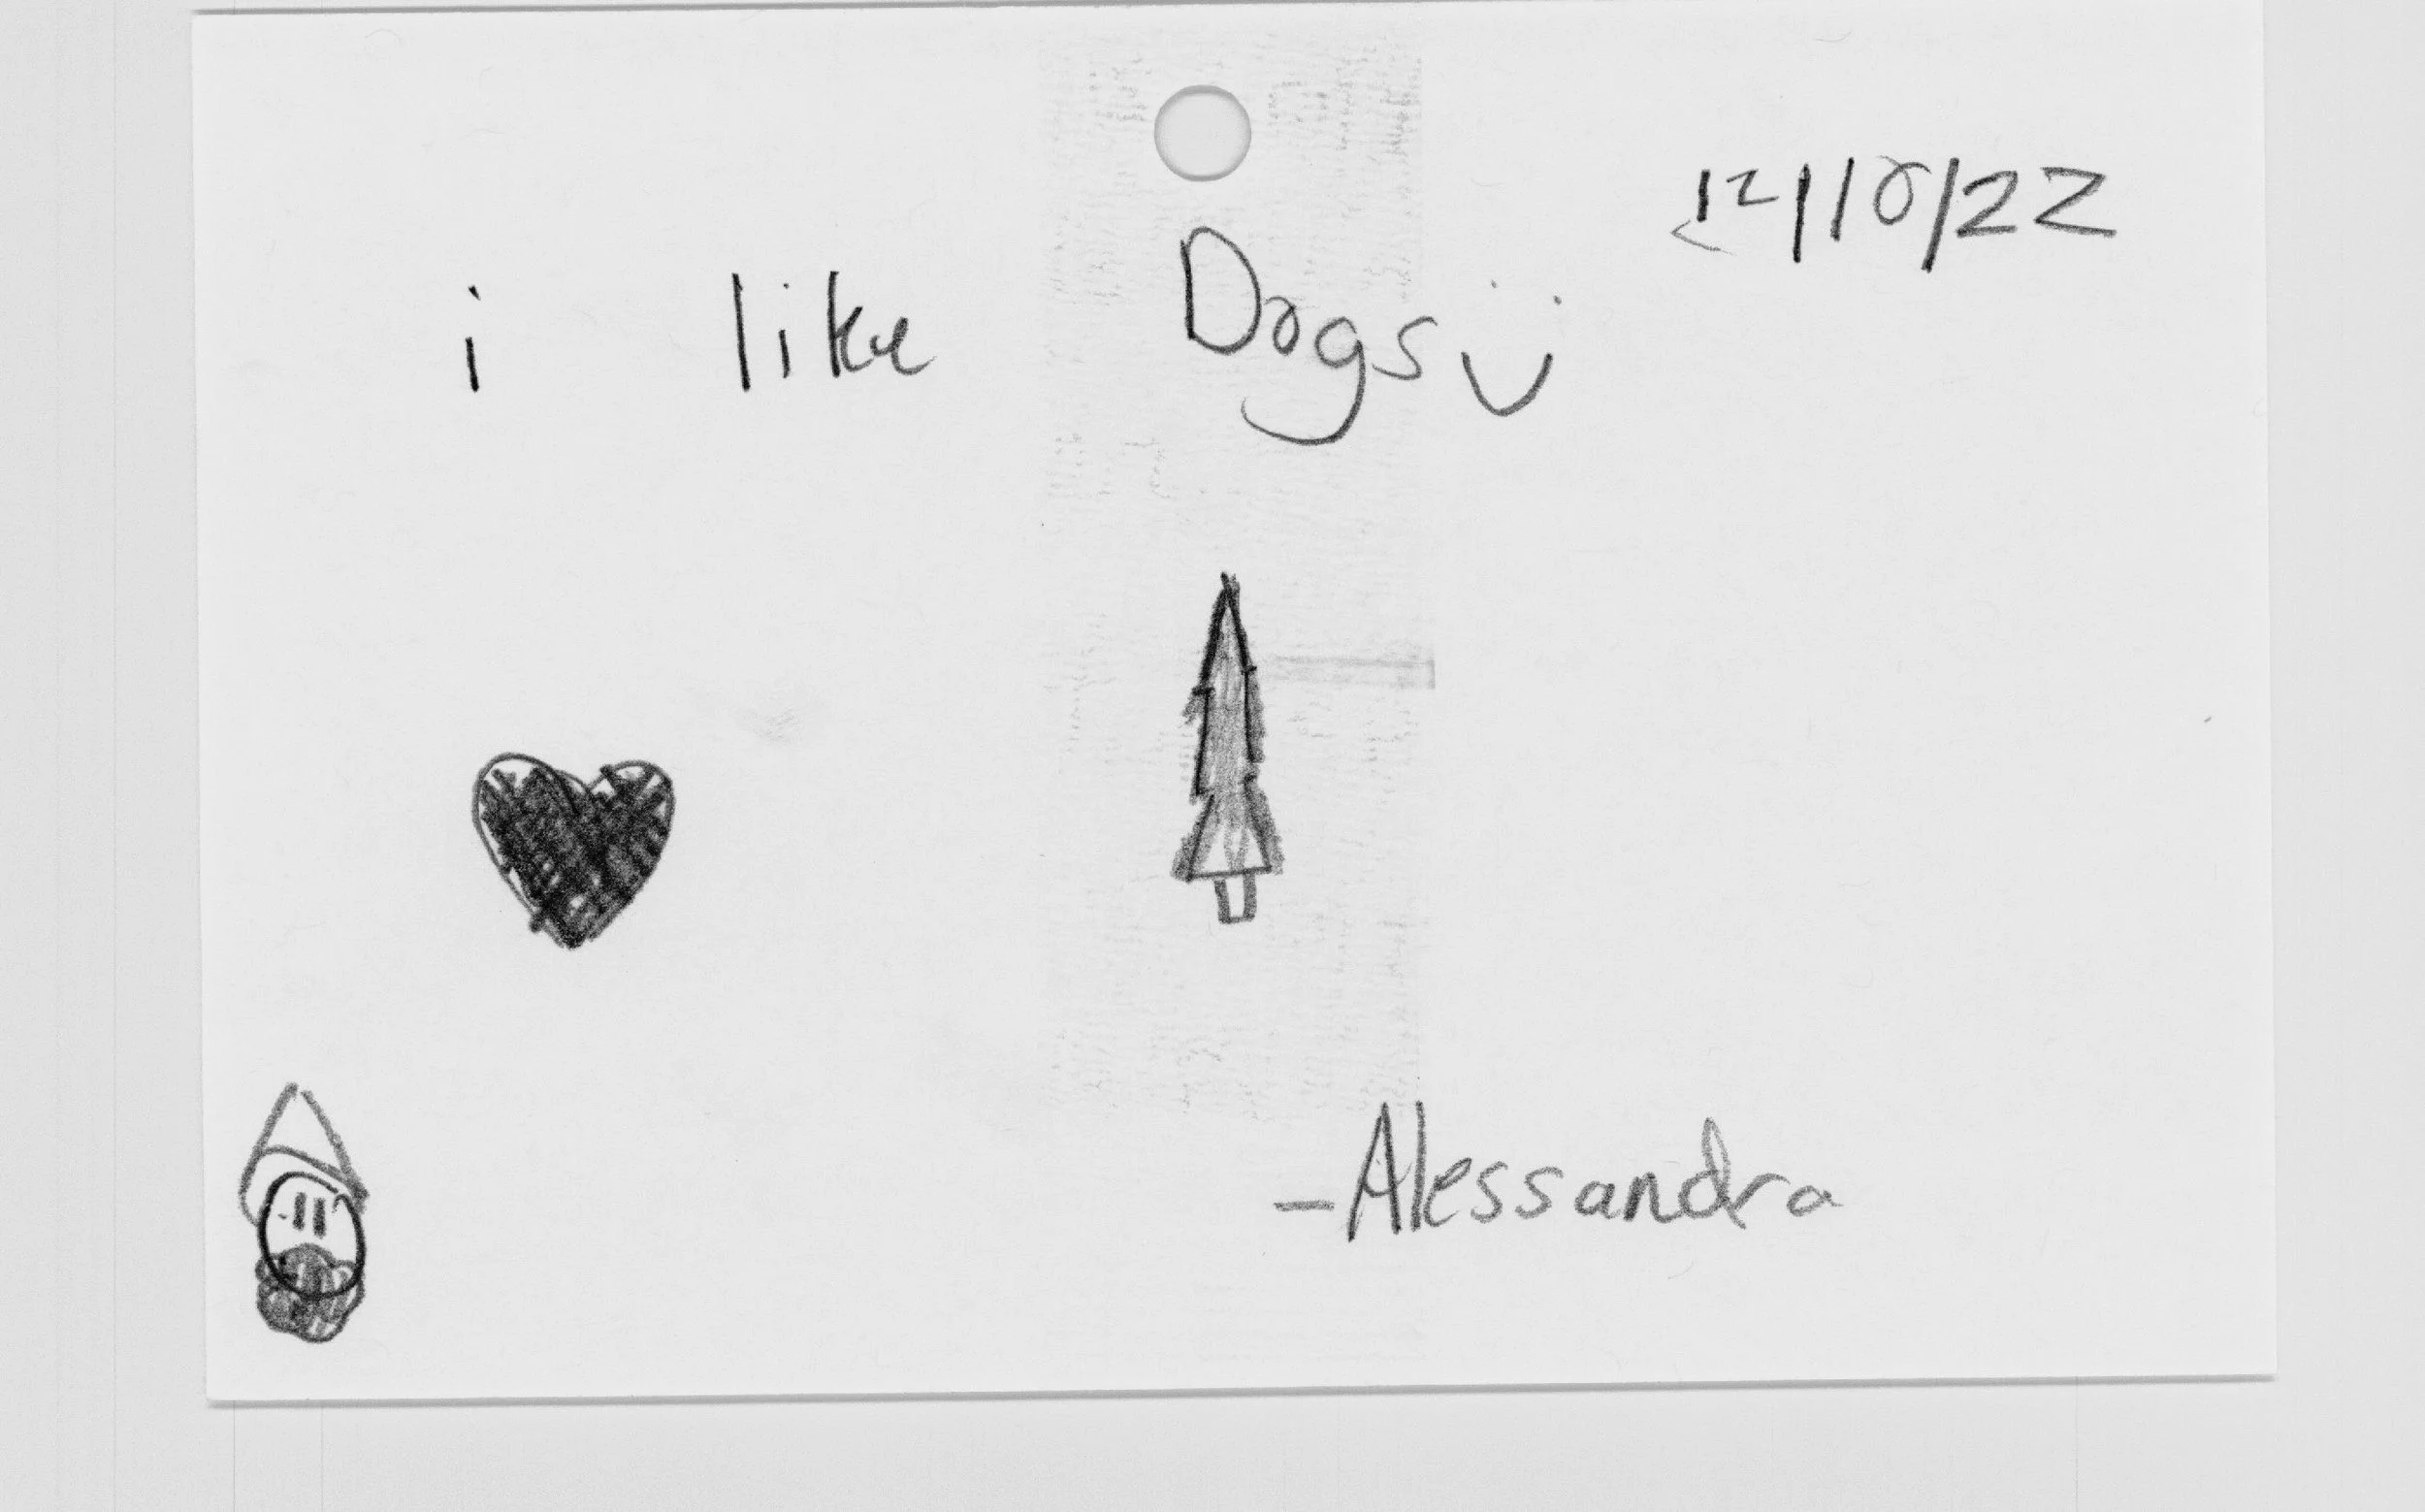 12/10/22
i like Dogs :)
-Alessandra